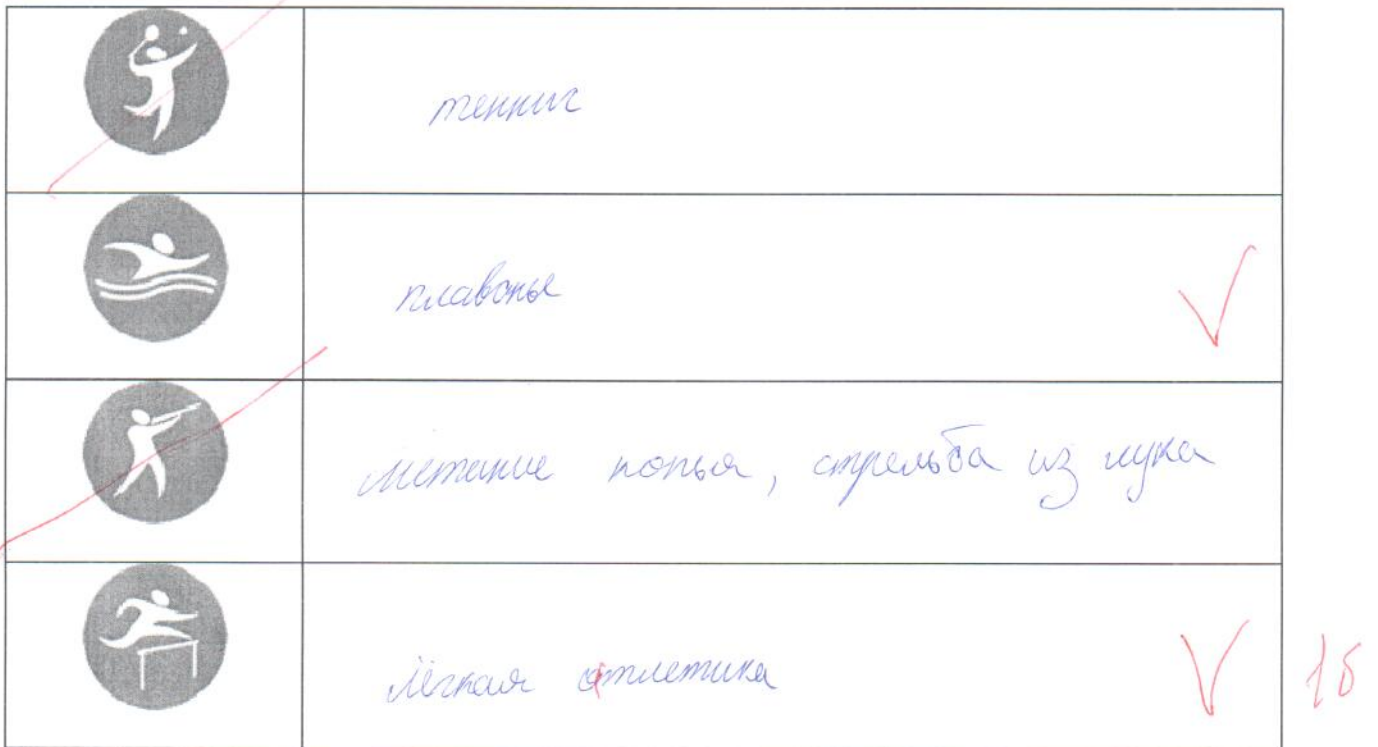 теннис
плаванье
метание копья, стрельба из лука
лёгкая атлетика
1б